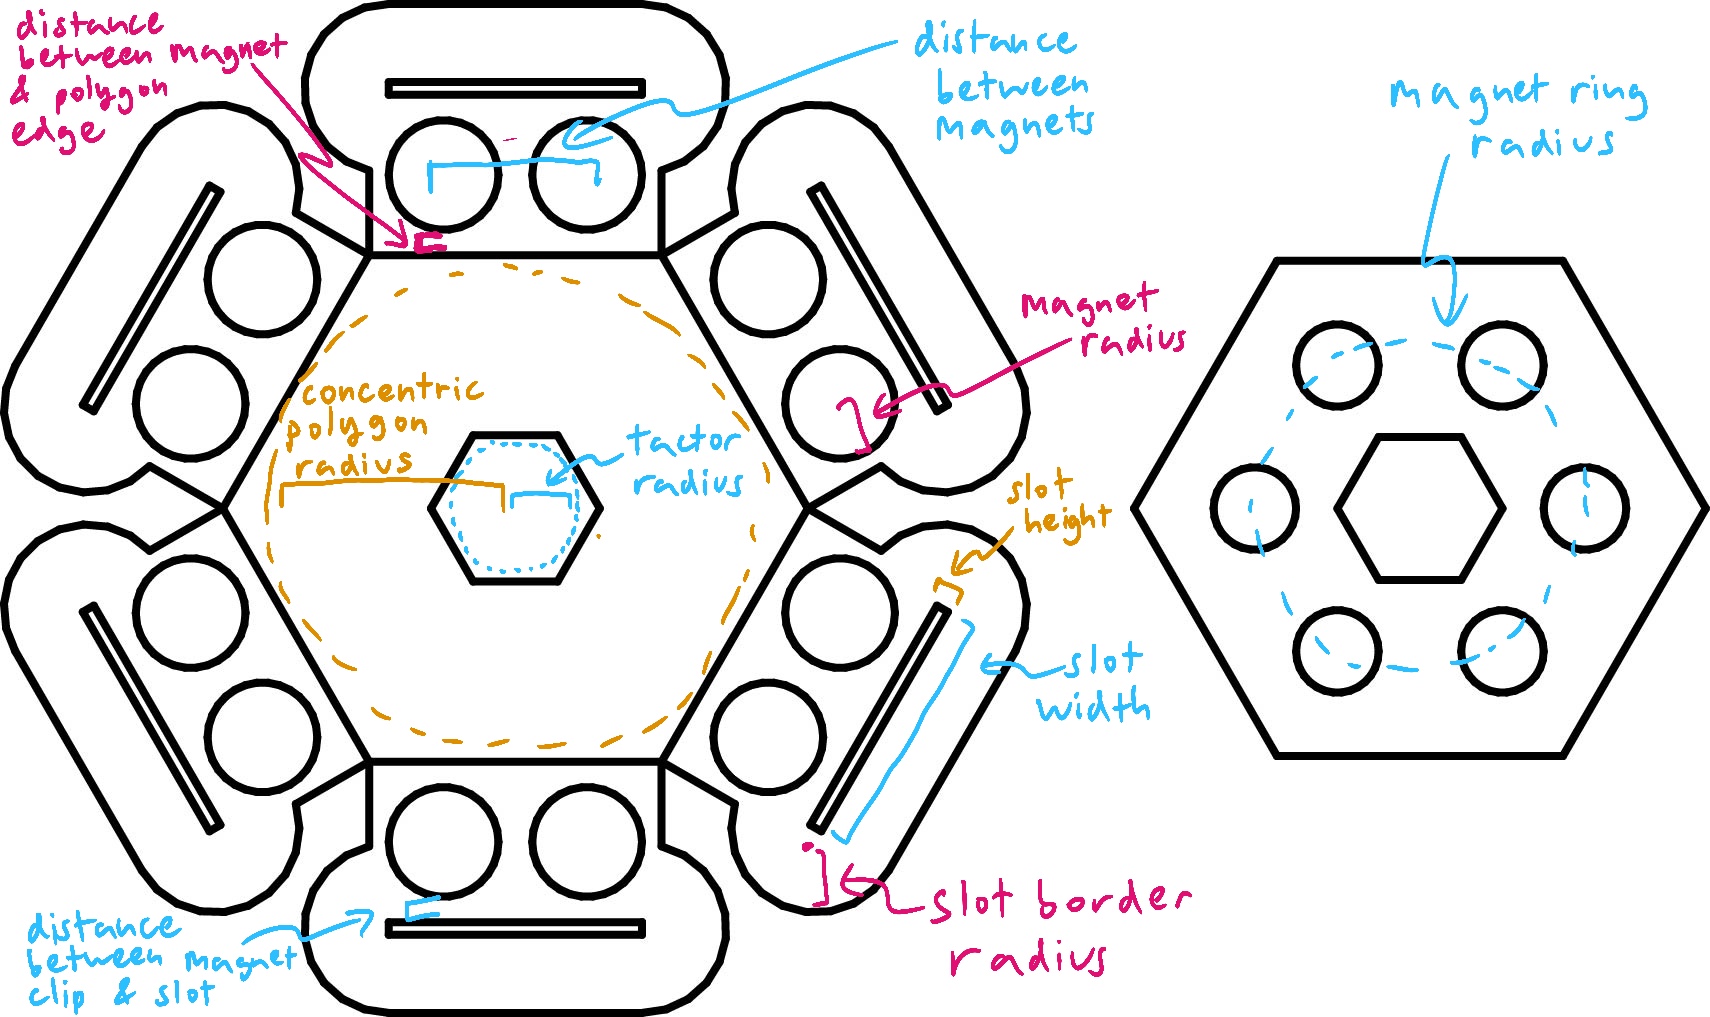 distance
between magnet
& polygon
edge
distance
between
magnets
magnet ring
radius
magnet
radius
concentric
polygon
radius
tactor
radius
slot
height
slot
width
slot border
radius
distance
between magnet
clip & slot